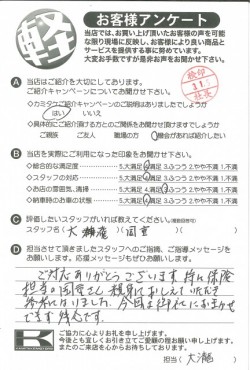 軽
お客様アンケート
当店では、お買い上げ頂いたお客様の声を可能
な限り現場に反映し、お客様により良い商品と
サービスを提供する事に努めています。
大変お手数ですが是非お声をお聞かせ下さい。
A 当店はご紹介を大切にしております。
ご紹介キャンペーンについてお聞かせ下さい。
◇カミタウご紹介キャンペーンのご説明はありましたでしょうか
はい いいえ
◇具体的にご紹介頂ける方とのご関係をお聞かせ頂けますでしょうか
ご親族 ご友人 職場の方 機会があれば紹介したい
B 当店を実際にご利用になった印象をお聞かせ下さい。
◇総合的な満足度 5.大満足 4.満足 3.ふつう 2.やや不満 1.不満
◇スタッフの対応 5.大満足 4.満足 3.ふつう 2.やや不満 1.不満
◇お店の雰囲気、清掃 5.大満足 4.満足 3.ふつう 2.やや不満 1.不満
◇納車時のお車の状態 5.大満足 4.満足 3.ふつう 2.やや不満 1.不満
C 評価したいスタッフがいれば教えてください。
スタッフ名
D 担当させて頂きましたスタッフへのご指摘、ご指導メッセージを
お願いします。応援メッセージもぜひお願いします。
ご対応ありがとうございます 特に保険
担当の
参考になりました。
できます
K
ご協力に心よりお礼を申し上げます。
今後とも宜しくお引き立てご愛顧の程お願い申し上げます。
またのご来店を心からお待ちしております。
担当(大瀧)